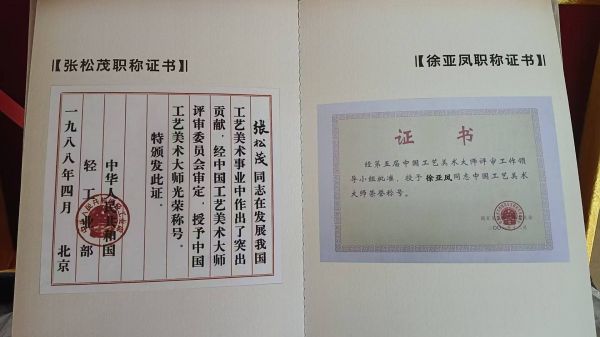 【张松茂职称证书】
张松茂同志在发展我国
工艺美术事业中作出了突出
贡献，经中国工艺美术大师
评审委员会审定，授予中国
工艺美术大师光荣称号。
特颁发此证。
中华人民共和国
轻工业部
一九八八年四月 北京
【徐亚凤职称证书】
证书
经第五届中国工艺美术大师评审工作领
导小组批准，授予徐亚凤同志中国工艺美术
大师荣誉称号。